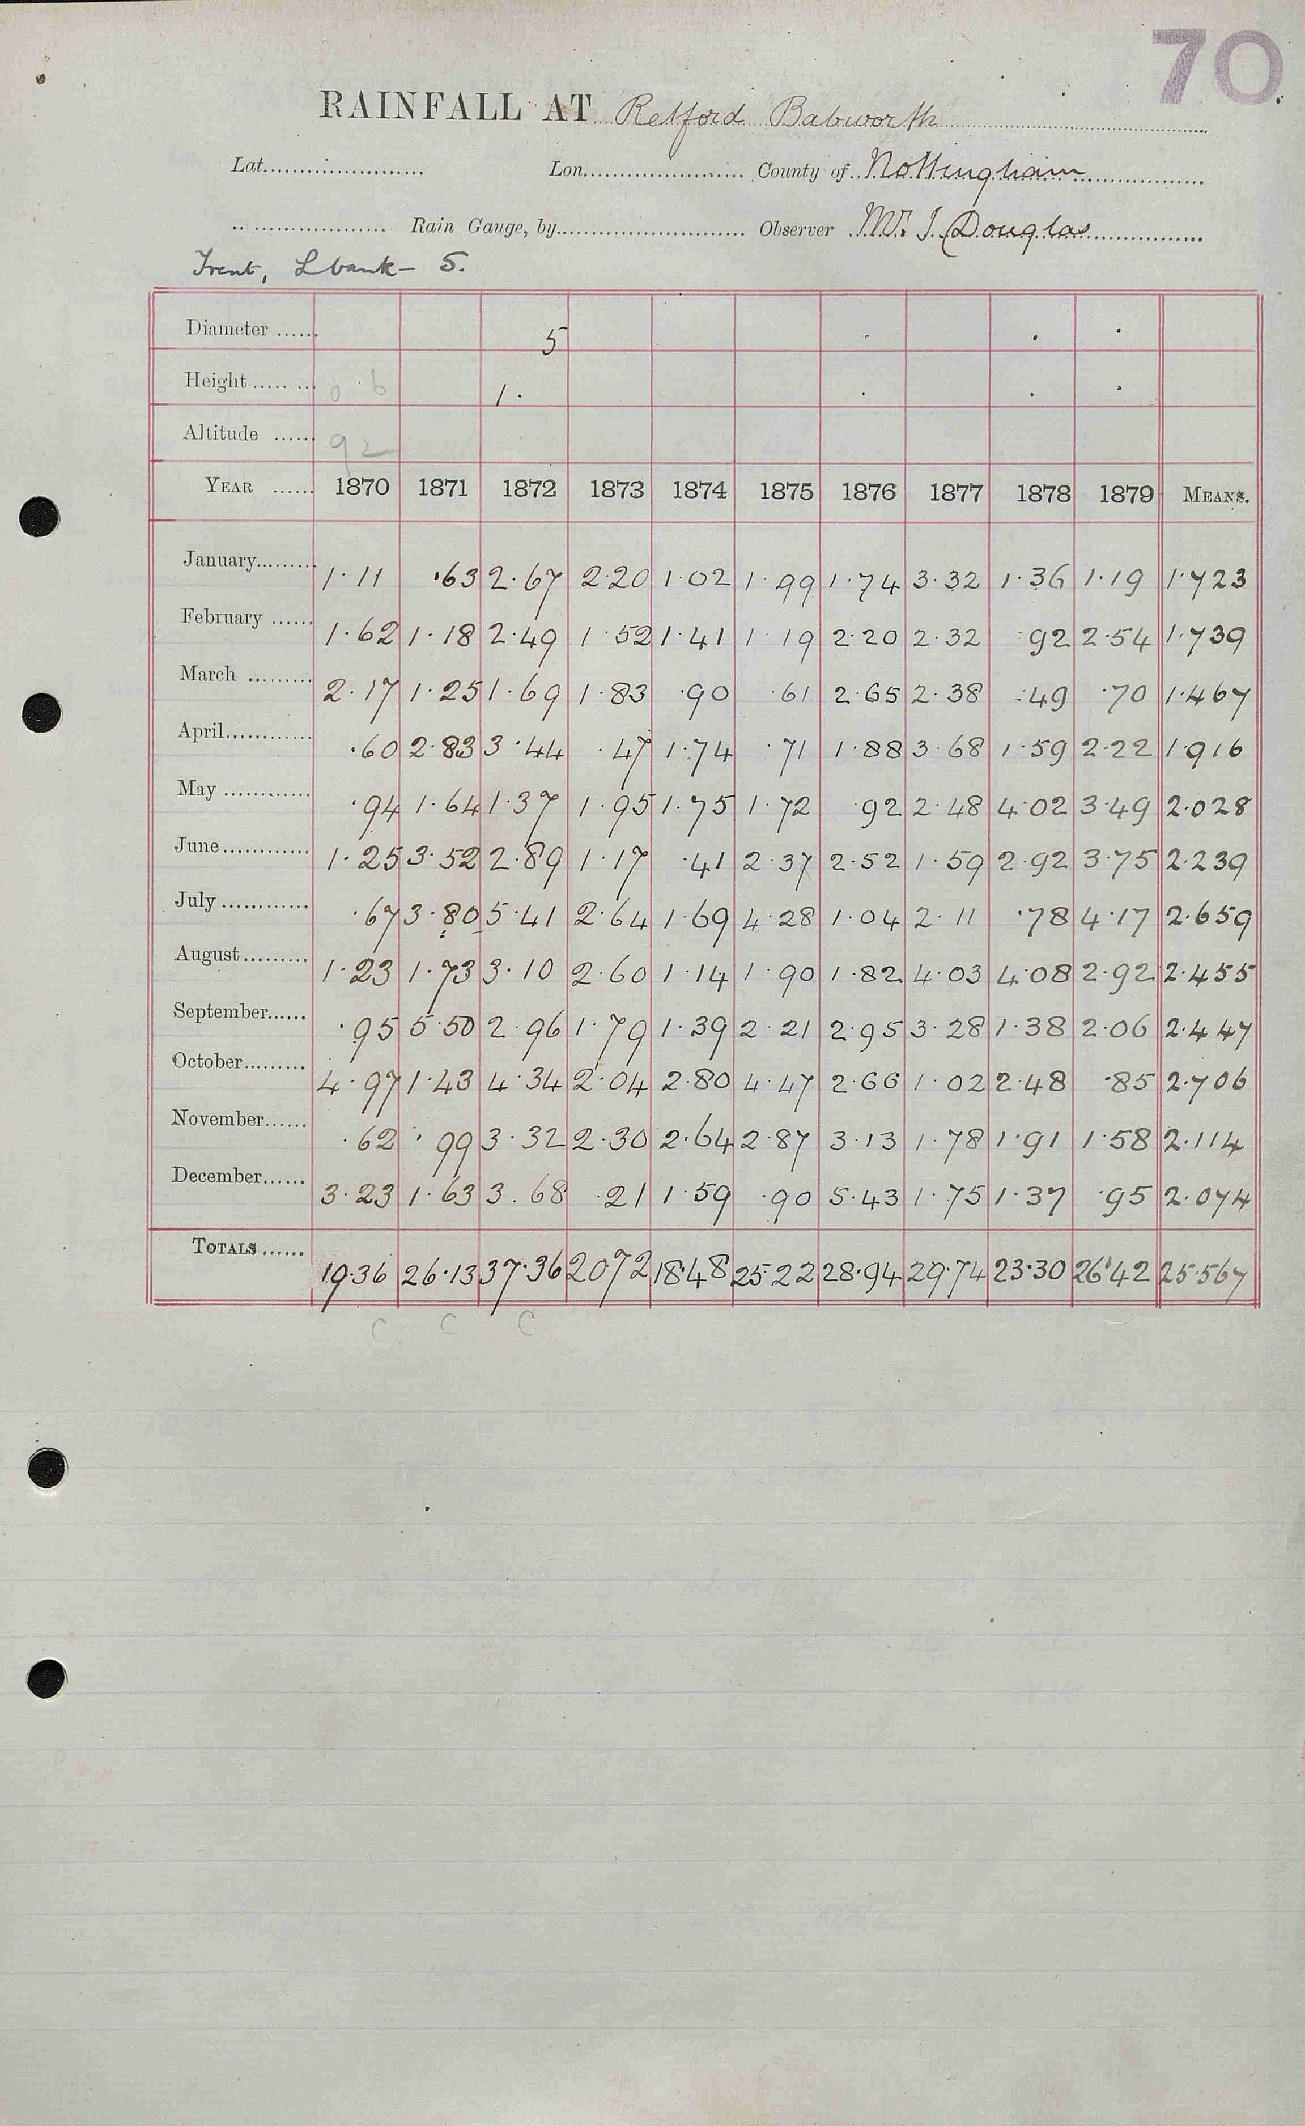 70
RAINFALL AT Retford Babworth
Lat. Lon. County of Nottingham
Rain Gauge, by Observer Mr. J. Douglas
Trent, L bank - 5.
Diameter 5
Height 0 6 1.
Altitude 92
YEAR 1870 1871 1872 1873 1874 1875 1876 1877 1878 1879 MEANS.
January 1.11 .63 2.67 2.20 1.02 1.99 1.74 3.32 1.36 1.19 1.723
February 1.62 1.18 2.49 1.52 1.41 1.19 2.20 2.32 .92 2.54 1.739
March 2.17 1.25 1.69 1.83 .90 .61 2.65 2.38 .49 .70 1.467
April .60 2.83 3.44 .47 1.74 .71 1.88 3.68 1.59 2.22 1.916
May .94 1.64 1.37 1.95 1.75 1.72 .92 2.48 4.02 3.49 2.028
June 1.25 3.52 2.89 1.17 .41 2.37 2.52 1.59 2.92 3.75 2.239
July .67 3.80 5.41 2.64 1.69 4.28 1.04 2.11 .78 4.17 2.659
August 1.23 1.73 3.10 2.60 1.14 1.90 1.82 4.03 4.08 2.92 2.455
September .95 5.50 2.96 1.79 1.39 2.21 2.95 3.28 1.38 2.06 2.447
October 4.97 1.43 4.34 2.04 2.80 4.47 2.66 1.02 2.48 .85 2.706
November .62 .99 3.32 2.30 2.64 2.87 3.13 1.78 1.91 1.58 2.114
December 3.23 1.63 3.68 .21 1.59 .90 5.43 1.75 1.37 .95 2.074
TOTALS 19.36 26.13 37.36 20.72 18.48 25.22 28.94 29.74 23.30 26.42 25.567
C C C